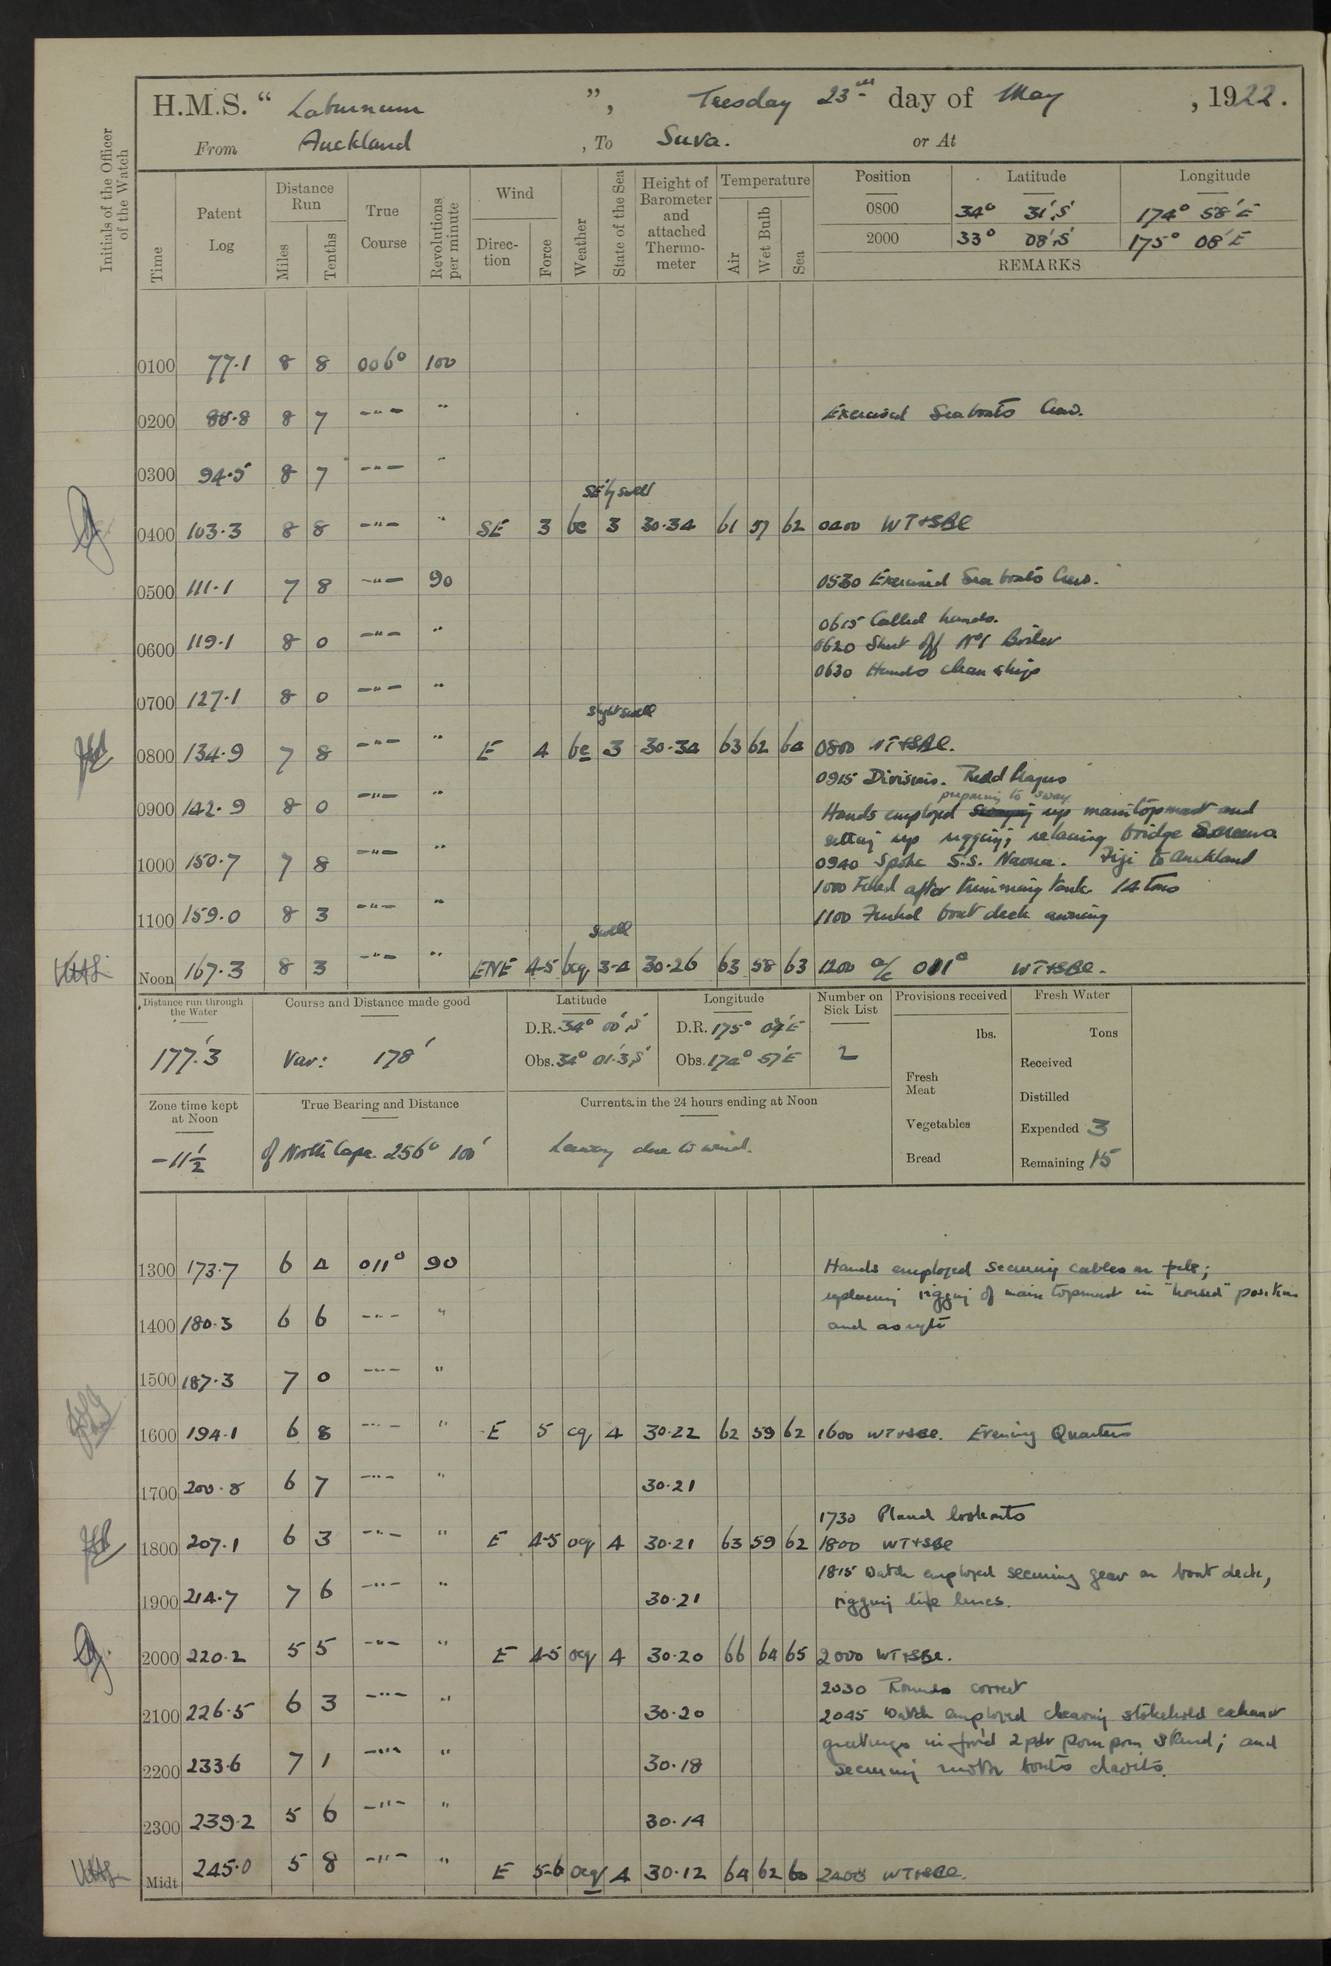 H.M.S. “ Laburnum ”, Tuesday 23rd day of May , 1922.
From Auckland , To Suva. or At
Initials of the Officer of the Watch
Time
Patent Log
Distance Run
Miles
Tenths
True Course
Revolutions per minute
Wind
Direction
Force
Weather
State of the Sea
Height of Barometer and attached Thermometer
Temperature
Air
Wet Bulb
Sea
Position Latitude Longitude
0800 34° 31' S 174° 58' E
2000 33° 08' S 175° 08' E
REMARKS
0100 77.1 8 8 006° 100
0200 88.8 8 7 –"– " Exercised Seaboats Crew.
0300 94.5 8 7 –"– "
SE'ly swell
0400 103.3 8 8 –"– " SE 3 bc 3 30.34 61 57 62 0400 WT+SBC
0500 111.1 7 8 –"– 90 0530 Exercised Sea boats Crew.
0615 Called hands.
0600 119.1 8 0 –"– " 0620 Shut off No 1 Boiler
0630 Hands clean ship
0700 127.1 8 0 –"– "
slight swell
0800 134.9 7 8 –"– " E 4 bc 3 30.34 63 62 64 0800 WT+SBC.
0915 Divisions. Read Prayers
preparing to sway
0900 142.9 8 0 –"– " Hands employed up main topmast and
setting up rigging; relacing bridge Screens
1000 150.7 7 8 –"– " 0940 Spoke S.S. Navua. Fiji to Auckland
1000 Filled after trimming tank 14 tons
1100 159.0 8 3 –"– " 1100 Furled boat deck awning
Swell
Noon 167.3 8 3 –"– " ENE 4-5 bcq 3-4 30.26 63 58 63 1200 a/c 011° WT+SBC.
Distance run through the Water
177.'3
Course and Distance made good
Var: 178'
Latitude
D.R. 34° 00' S
Obs. 34° 01.3' S
Longitude
D.R. 175° 07' E
Obs. 174° 57' E
Number on Sick List
2
Provisions received
lbs.
Fresh Meat
Vegetables
Bread
Fresh Water
Tons
Received
Distilled
Expended 3
Remaining 15
Zone time kept at Noon
–11½
True Bearing and Distance
of North Cape 256° 100'
Currents in the 24 hours ending at Noon
Leeway due to wind.
1300 173.7 6 4 011° 90 Hands employed securing cables on fxle;
replacing rigging of main topmast in "housed" position
1400 180.3 6 6 –"– " and as reqte
1500 187.3 7 0 –"– "
1600 194.1 6 8 –"– " E 5 cq 4 30.22 62 59 62 1600 WT+SBC. Evening Quarters
1700 200.8 6 7 –"– " 30.21
1730 Placed lookouts
1800 207.1 6 3 –"– " E 4-5 ocq 4 30.21 63 59 62 1800 WT+SBC
1815 Watch employed securing gear on boat deck,
1900 214.7 7 6 –"– " 30.21 rigging life lines.
2000 220.2 5 5 –"– " E 4-5 ocq 4 30.20 66 64 65 2000 WT+SBC.
2030 Rounds correct
2100 226.5 6 3 –"– " 30.20 2045 Watch employed clearing stokehold exhaust
gratings in for'd 2 pdr pom pom stand; and
2200 233.6 7 1 –"– " 30.18 securing motor boats davits.
2300 239.2 5 6 –"– " 30.14
Midt 245.0 5 8 –"– " E 5-6 ocq 4 30.12 64 62 60 2400 WT+SBC.